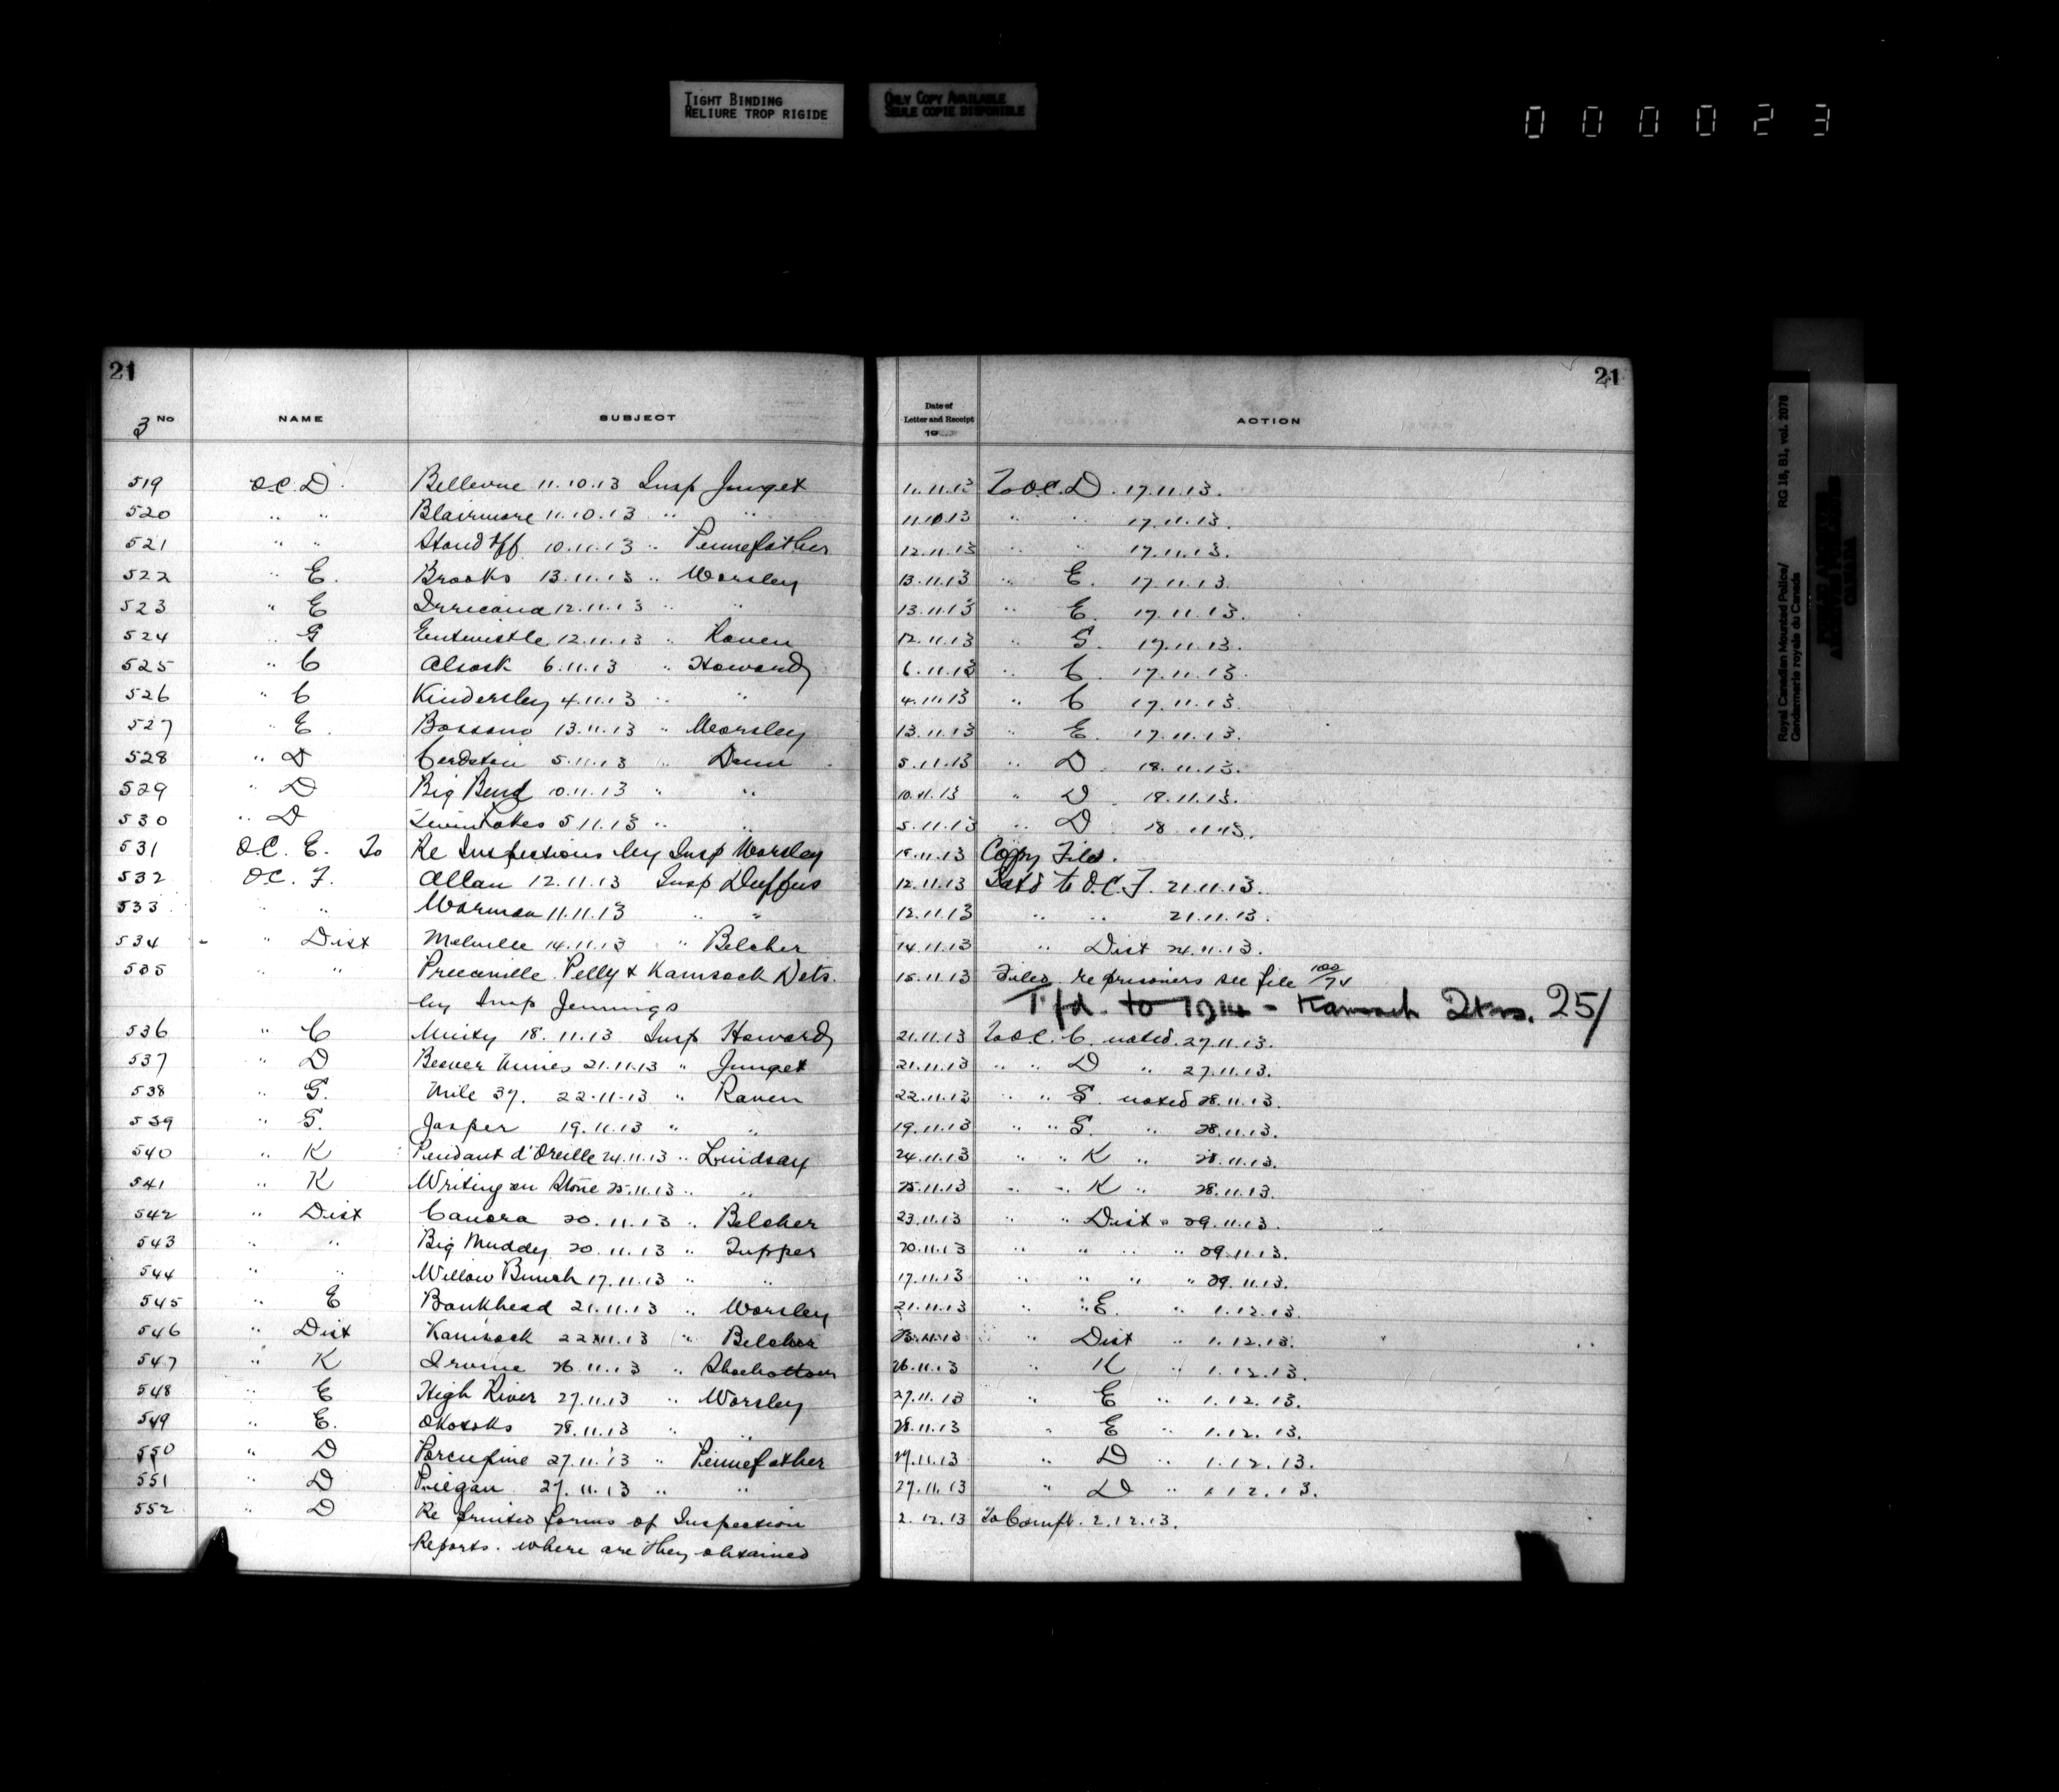 TIGHT BINDING
RELIURE TROP RIGIDE
ONLY COPY AVAILABLE
SEULE COPIE DISPONIBLE
000023
21 21
3 No NAME SUBJECT Date of Letter and Receipt 19 ACTION
519 O.C. D. Bellevue 11.10.13 Insp Junget 11.11.13 To O.C. D. 17.11.13.
520 " " Blairmore 11.10.13 " " 11.10.13 " " 17.11.13.
521 " " Stand Off 10.11.13 " Pennefather 12.11.13 " " 17.11.13.
522 " E. Brooks 13.11.13 " Worsley 13.11.13 " E. 17.11.13.
523 " E Irricana 12.11.13 " " 13.11.13 " E. 17.11.13.
524 " G Entwistle 12.11.13 " Raven 12.11.13 " G. 17.11.13.
525 " C Alsask 6.11.13 " Howard 6.11.13 " C. 17.11.13.
526 " C Kindersley 4.11.13 " " 4.11.13 " C 17.11.13.
527 " E. Bassano 13.11.13 " Worsley 13.11.13 " E. 17.11.13.
528 " D Cardston 5.11.13 " Dann 5.11.13 " D. 18.11.13.
529 " D Big Bend 10.11.13 " " 10.11.13 " D. 18.11.13.
530 " D Twin Lakes 5.11.13 " " 5.11.13 " D. 18.11.13.
531 O.C. E. To Re Inspections by Insp Worsley 15.11.13 Copy Filed.
532 O.C. F. Allan 12.11.13 Insp Duffus 12.11.13 to O.C. F. 21.11.13.
533 " " Warman 11.11.13 " " 12.11.13 " " 21.11.13.
534 " Dist Melville 14.11.13 " Belcher 14.11.13 " Dist 24.11.13.
535 " " Preeceville Pelly & Kamsack Dets. 15.11.13 Filed re prisoners see file
by Insp Jennings Tfd. to 1914 - Kamsack 25/
536 " C Unity 18.11.13 Insp Howard 21.11.13 To O.C. C. noted. 27.11.13.
537 " D Beaver Mines 21.11.13 " Junget 21.11.13 " " D " 27.11.13.
538 " G. Mile 37. 22.11.13 " Raven 22.11.13 " " G. noted 28.11.13.
539 " G. Jasper 19.11.13 " " 19.11.13 " " G. " 28.11.13.
540 " K Pendant d'Oreille 24.11.13 " Lindsay 24.11.13 " " K " 28.11.13.
541 " K Writing on Stone 25.11.13 " " 25.11.13 " " K " 28.11.13.
542 " Dist Canora 20.11.13 " Belcher 23.11.13 " " Dist " 29.11.13.
543 " " Big Muddy 20.11.13 " Tupper 20.11.13 " " " " 29.11.13.
544 " " Willow Bunch 17.11.13 " " 17.11.13 " " " " 29.11.13.
545 " E Bankhead 21.11.13 " Worsley 21.11.13 " " E. " 1.12.13.
546 " Dist Kamsack 22.11.13 " Belcher " Dist " 1.12.13.
547 " K Irvine 26.11.13 " Shoebottom 26.11.13 " K " 1.12.13.
548 " E High River 27.11.13 " Worsley 27.11.13 " E " 1.12.13.
549 " E. Okotoks 28.11.13 " " 28.11.13 " E " 1.12.13.
550 " D Porcupine 27.11.13 " Pennefather 27.11.13 " D " 1.12.13.
551 " D Piegan 27.11.13 " " 27.11.13 " D " 1.12.13.
552 " D Re Printed forms of Inspection 2.12.13 To Compt. 2.12.13.
Reports. where are they obtained
Royal Canadian Mounted Police/ RG 18, B1, vol. 2078
Gendarmerie royale du Canada
PUBLIC ARCHIVES
CANADA